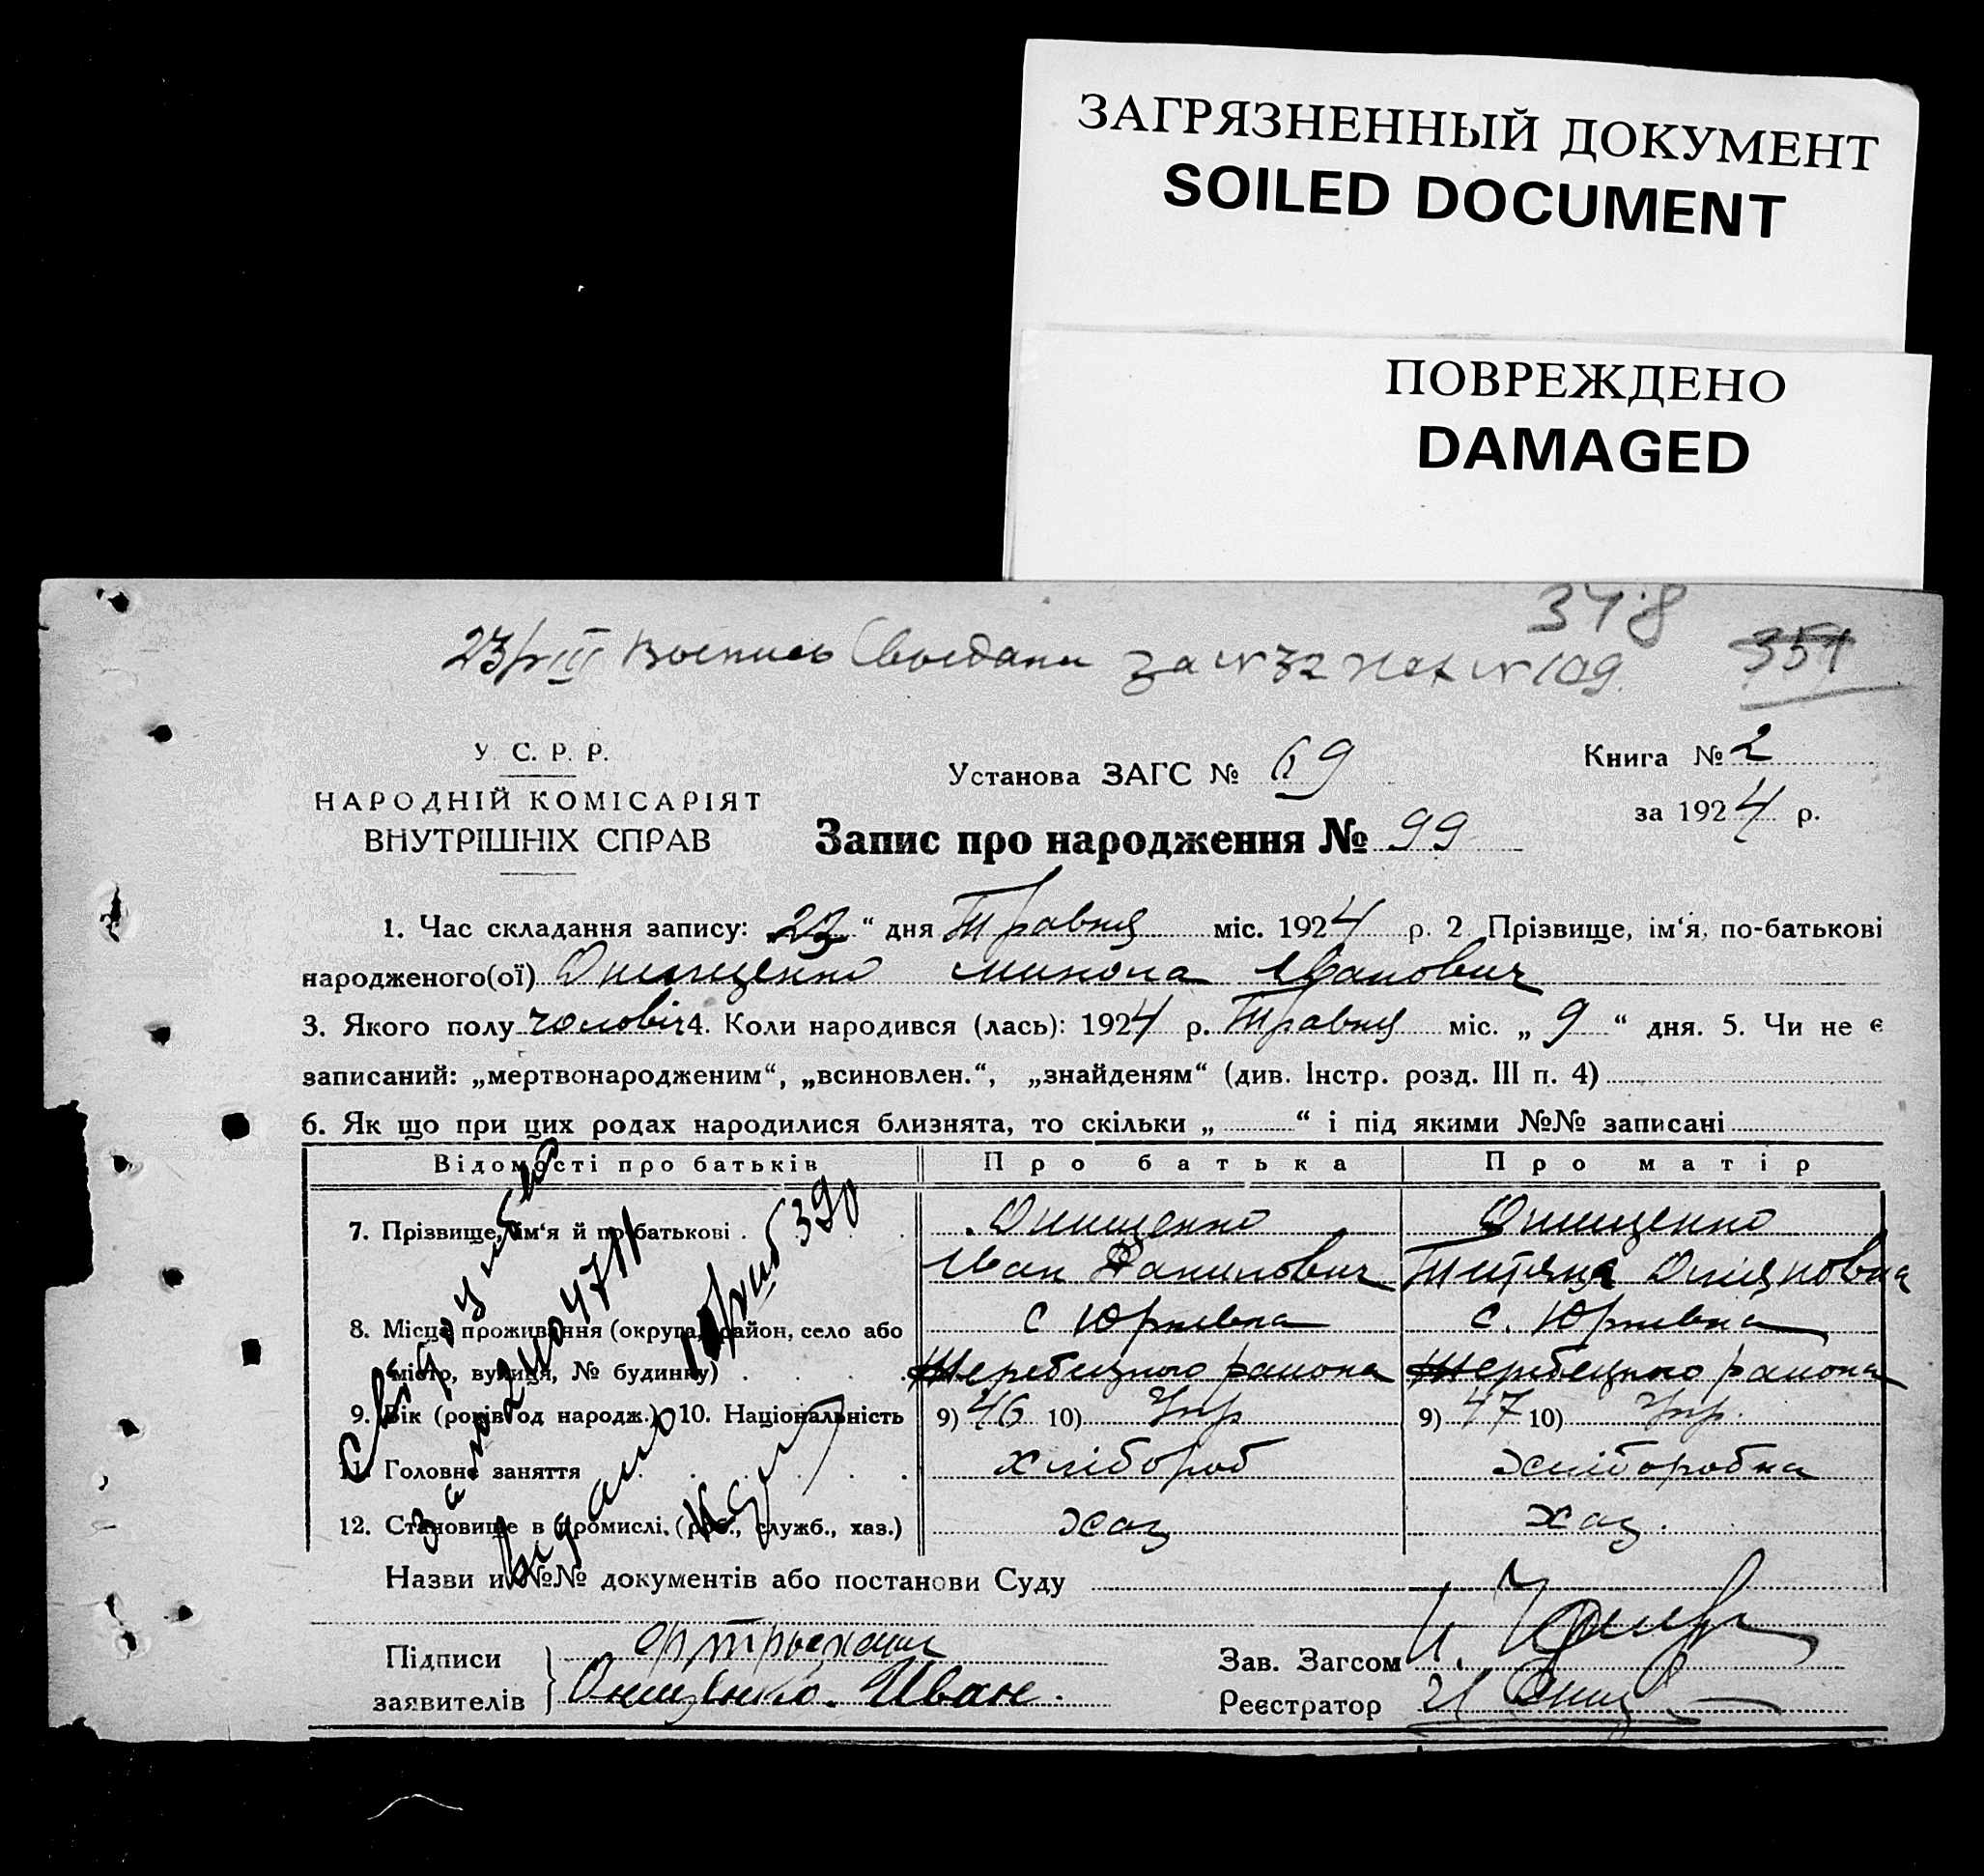 ЗАГРЯЗНЕННЫЙ ДОКУМЕНТ
SOILED DOCUMENT
ПОВРЕЖДЕНО
DAMAGED
348
351
23/VIII за № 32 № 109
У. С. Р. Р.
НАРОДНІЙ КОМІСАРІЯТ
ВНУТРІШНІХ СПРАВ
Установа ЗАГС № 69
Книга № 2
за 1924 р.
Запис про народження № 99
1. Час складання запису: 23 “ дня Травця міс. 1924 р. 2 Прізвище, ім‘я, по-батькові
народженого(ої) Онищенко Микола Іванович
3. Якого полу чоловіч 4. Коли народився (лась): 1924 р. Травця міс. „ 9 “ дня. 5. Чи не є
записаний: „мертвонародженим“, „всиновлен.“, „знайденям“ (див. Інстр. розд. III п. 4)
6. Як що при цих родах народилися близнята, то скільки „ “ і під якими №№ записані
Відомості про батьків Про батька Про матір
7. Прізвище, ім‘я й по-батькові . Онищенко Онищенко
Іван Данилович Титяна
8. Місце проживання (округа, район, село або с Юрківка с. Юрківка
місто, вулиця, № будинку) Жеребецького района Жеребецького района
9. Вік (років од народж.) 10. Національність 9) 46 10) Укр 9) 47 10) Укр.
11. Головне заняття хлібороб хліборобка
12. Становище в промислі. (роб., служб., хаз.) хаз хаз.
Назви и №№ документів або постанови Суду
Підписи
заявителів Онищенко. Иван.
Зав. Загсом
Реєстратор